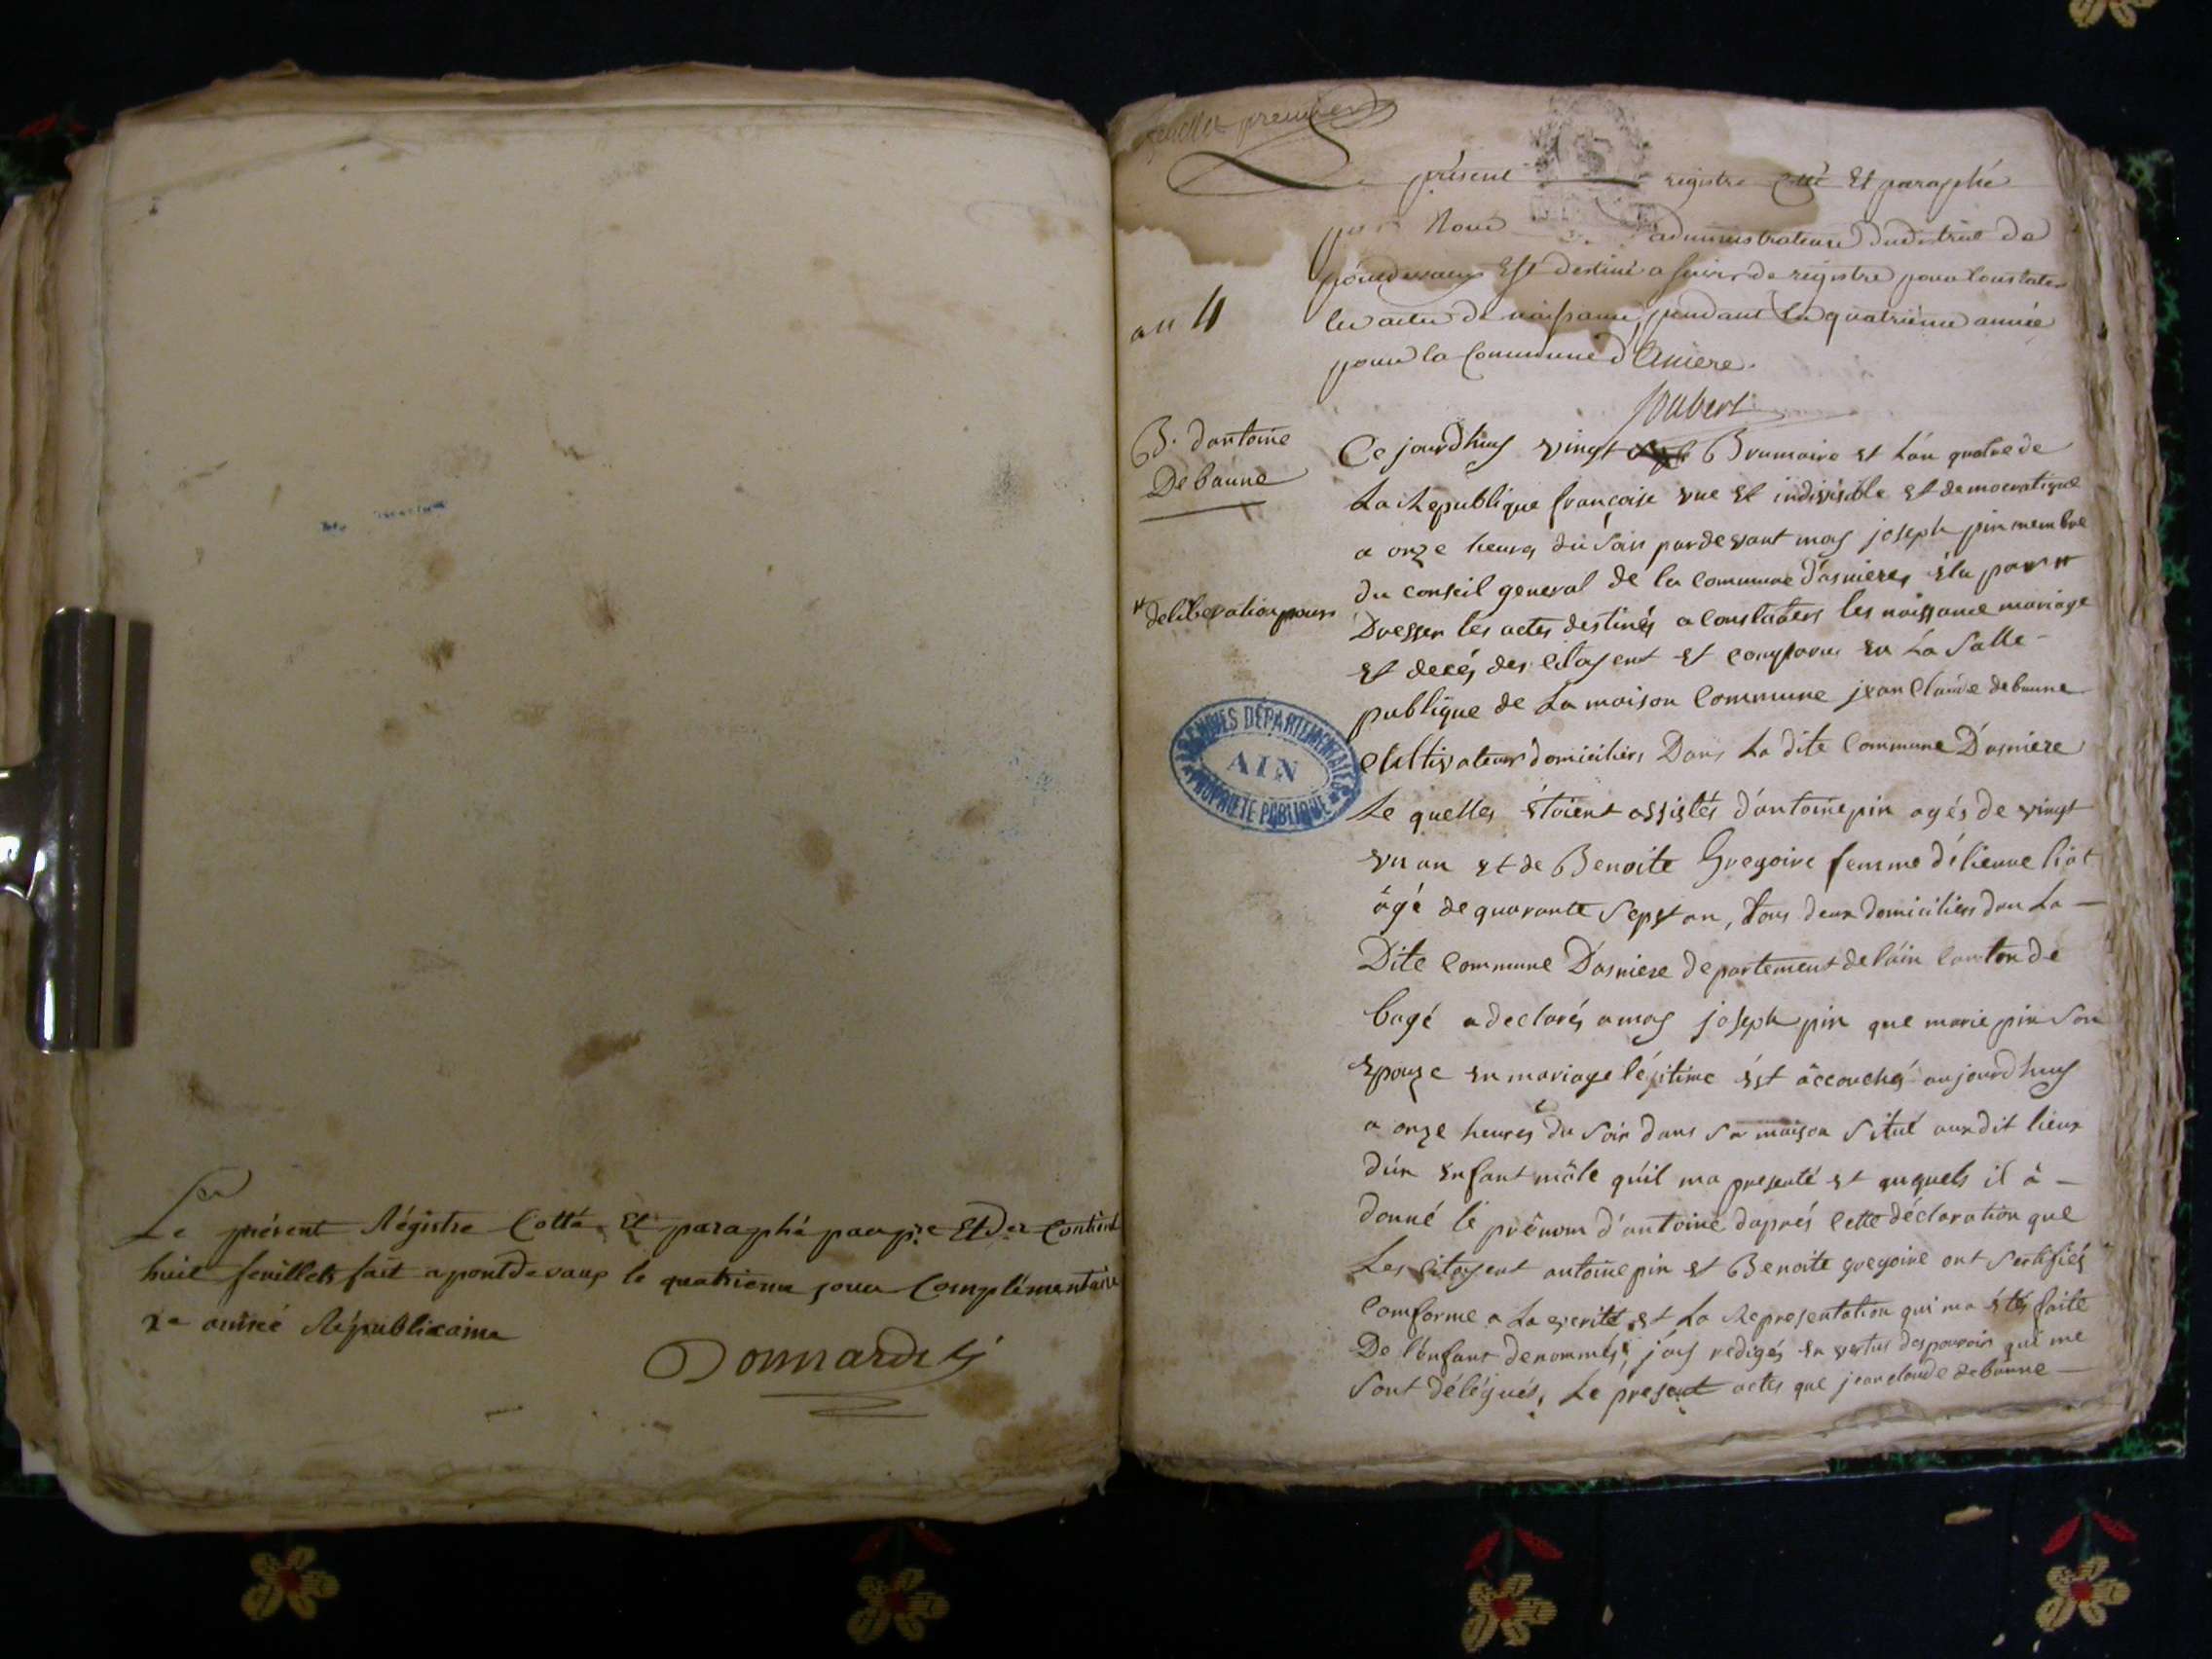 Le présent Régistre Cotté Et paraphé par pre Et Der Contient
huit feuillets fait a pontdevaux le quatrieme jour Complémentaire
année Républicaine
feuillet premier
Le présent registre coté Et paraphé
par Nous administrateur du district de
pontdevaux Est destiné a servir de registre pour Constater
les actes de naissance, pendant la quatrieme année
pour la Commune d'Aniere.
Joubert
an 4
B. dantoine
Debaune
Ce jourdhuy vingt Brumaire et Lán quatre de
La Republique françoise une et indivisible et democratique
a onze heures du Soir pardevant moy joseph pin membre
du conseil general de la commune d'asnieres élu par #
# deliberation pour
Dresser les actes destinés a constaters les naissance mariage
et decés des citoyent et comparu en La Salle -
publique de La maison Commune jean Claude debaune
Cultivateur domiciliers Dans La dite Commune D'asniere
Le quelles étoient assistés d'antoine pin agés de vingt
un an et de Benoite Gregoire femme détienne liot
âgé de quarante Sept an, tous deux domiciliers dan La -
Dite Commune D'asniere departement de láin Canton de
bagé a declarés a moy joseph pin que marie pin Son
Epouze en mariage légitime ést âccouché aujourdhuy
a onze heures du Soir dans Sa maison Situé audit lieux
dún Enfant mâle qúil ma presenté et auquels il â -
donné le prênom d'antoine daprés Cette déclaration que
Les Citoyent antoine pin et Benoite gregoire ont Sertifiés
Comforme a La verité, et La Representation qui ma étés faite
De lénfant denommés, jáy redigés en vertus des pouvoir qui me
Sont délégués, Le present actes que jean claude debaune -
ARCHIVES DÉPARTEMENTALES
AIN
PROPRIÉTÉ PUBLIQUE